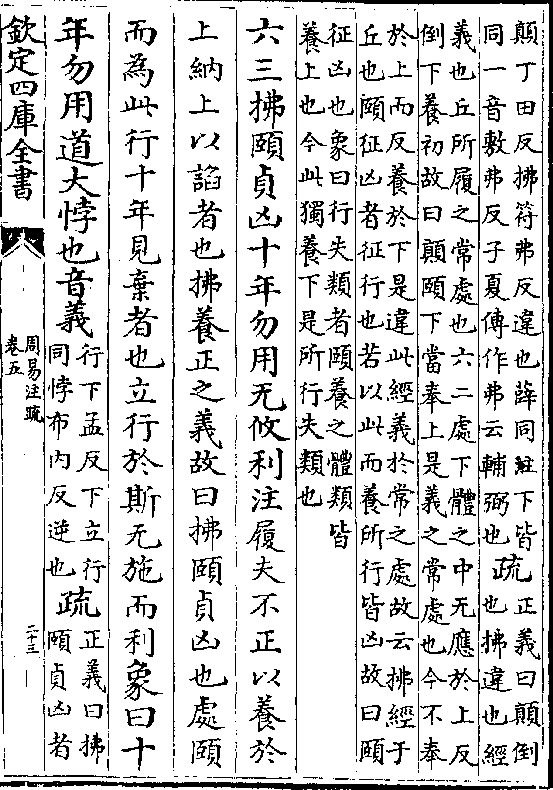 顛丁田反拂符弗反違也薛同註下皆
同一音敷弗反子夏傳作弗云輔弼也
疏
正義曰顛倒
也拂違也經
義也丘所履之常處也六二處下體之中无應於上反
倒下養初故曰顛頤下當奉上是義之常處也今不奉
於上而反養於下是違此經義於常之處故云拂經于
丘也頤征凶者征行也若以此而養所行皆凶故曰頤
征凶也象曰行失類者頤養之體類皆
養上也今此獨養下是所行失類也
六三拂頤貞凶十年勿用无攸利注履夫不正以養於
上納上以諂者也拂養正之義故曰拂頤貞凶也處頤
而為此行十年見棄者也立行於斯无施而利象曰十
年勿用道大悖也音義
行下孟反下立行
同悖布内反逆也
疏
正義曰拂
頤貞凶者
欽定四庫全書
周易注疏
卷五
二十三